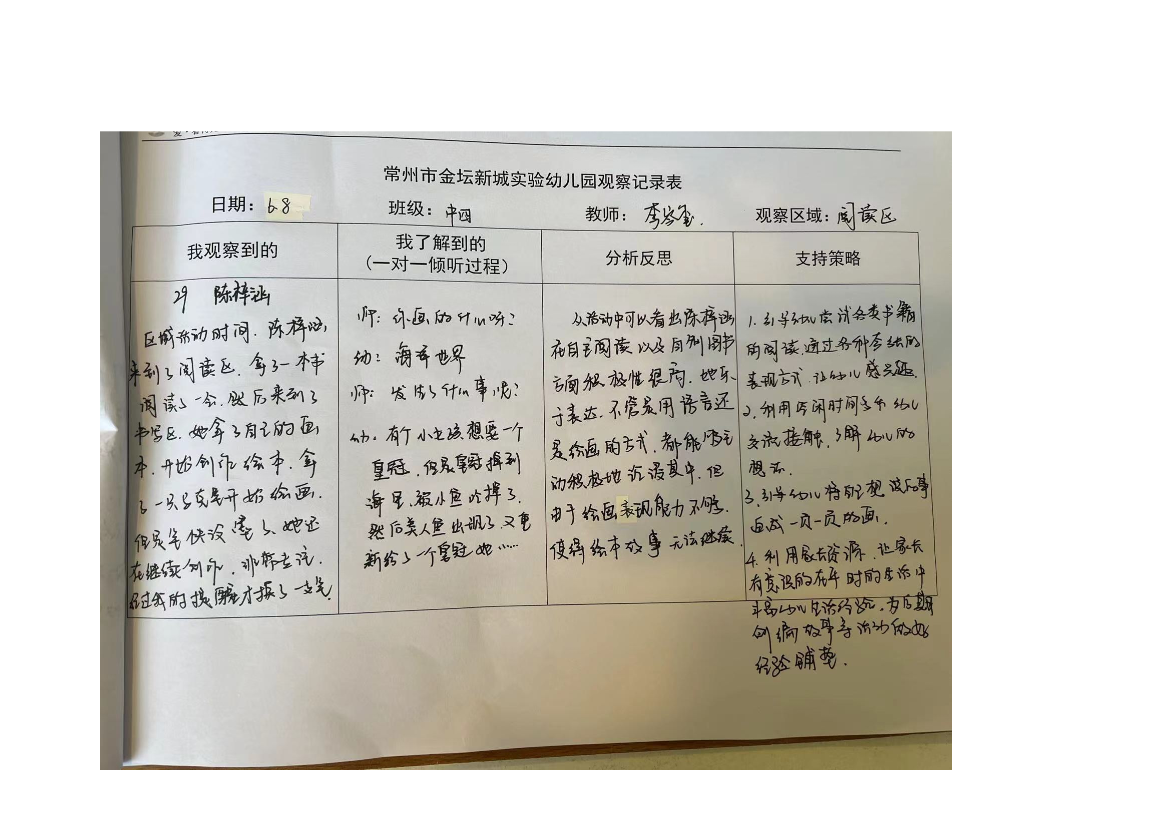 常州市金坛新城实验幼儿园观察记录表
日期：6.8 班级：中四 教师：李 观察区域：阅读区
我观察到的
我了解到的
（一对一倾听过程）
分析反思
支持策略
29 陈梓涵
区域活动时间，陈梓涵
来到了阅读区，拿了一本书
阅读了一会，然后来到了
书写区，她拿了自己的画
本，开始创作绘本，拿
了一只勾线笔开始绘画，
但是笔快没墨了，她还
在继续创作，非常专注，
经过我的提醒才换了一支笔
师：你画的什么呀？
幼：海洋世界
师：发生了什么事呢？
幼：有个小女孩想要一个
皇冠，但是皇冠掉到
海里，被小鱼吃掉了，
然后美人鱼出现了，又重
新给了一个皇冠她……
从活动中可以看出陈梓涵
在自主阅读以及自制图书
方面积极性很高，她乐
于表达，不管是用语言还
是绘画的方式，都能够主
动积极地沉浸其中，但
由于绘画表现能力不够，
使得绘本故事无法继续
1.引导幼儿尝试各类书籍
的阅读，通过各种各样的
表现方式，让幼儿感兴趣。
2.利用空闲时间多和幼儿
交流接触，了解幼儿的
想法。
3.引导幼儿将联想的故事
画成一页一页的画。
4.利用家长资源，让家长
有意识的在平时的生活中
丰富幼儿生活经验，为后期
创编故事等活动做好
经验铺垫。